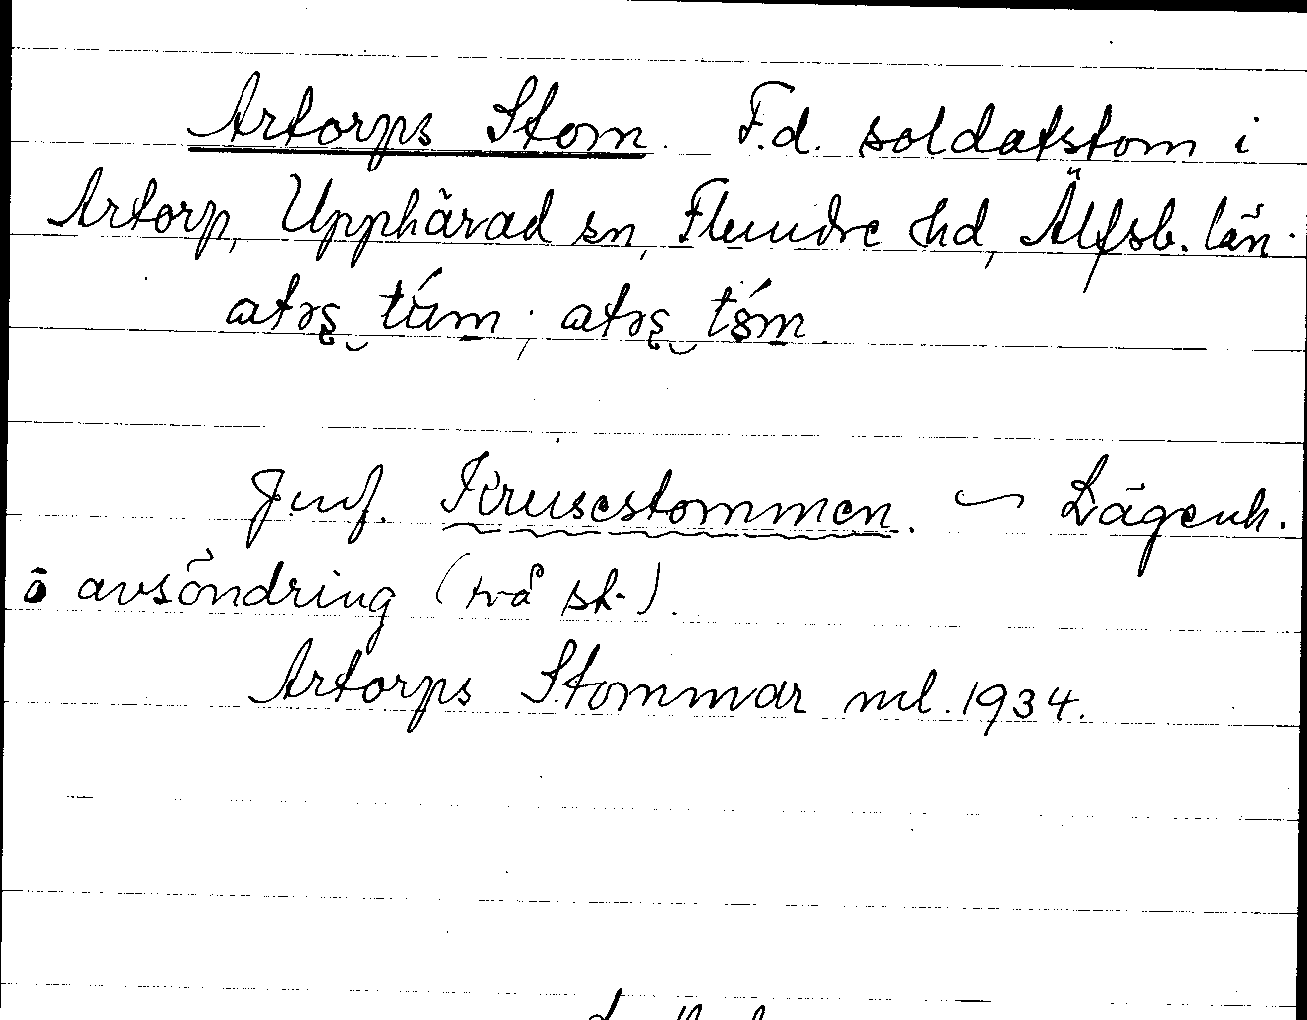 Artorps Stom. F.d. soldatstom i
Artorp, Upphärad sn, Flundre hd, Älfsb. län.
Jmf. Krusestommen. ~ Lägenh.
o avsöndring (två st.).
Artorps Stommar ml. 1934.